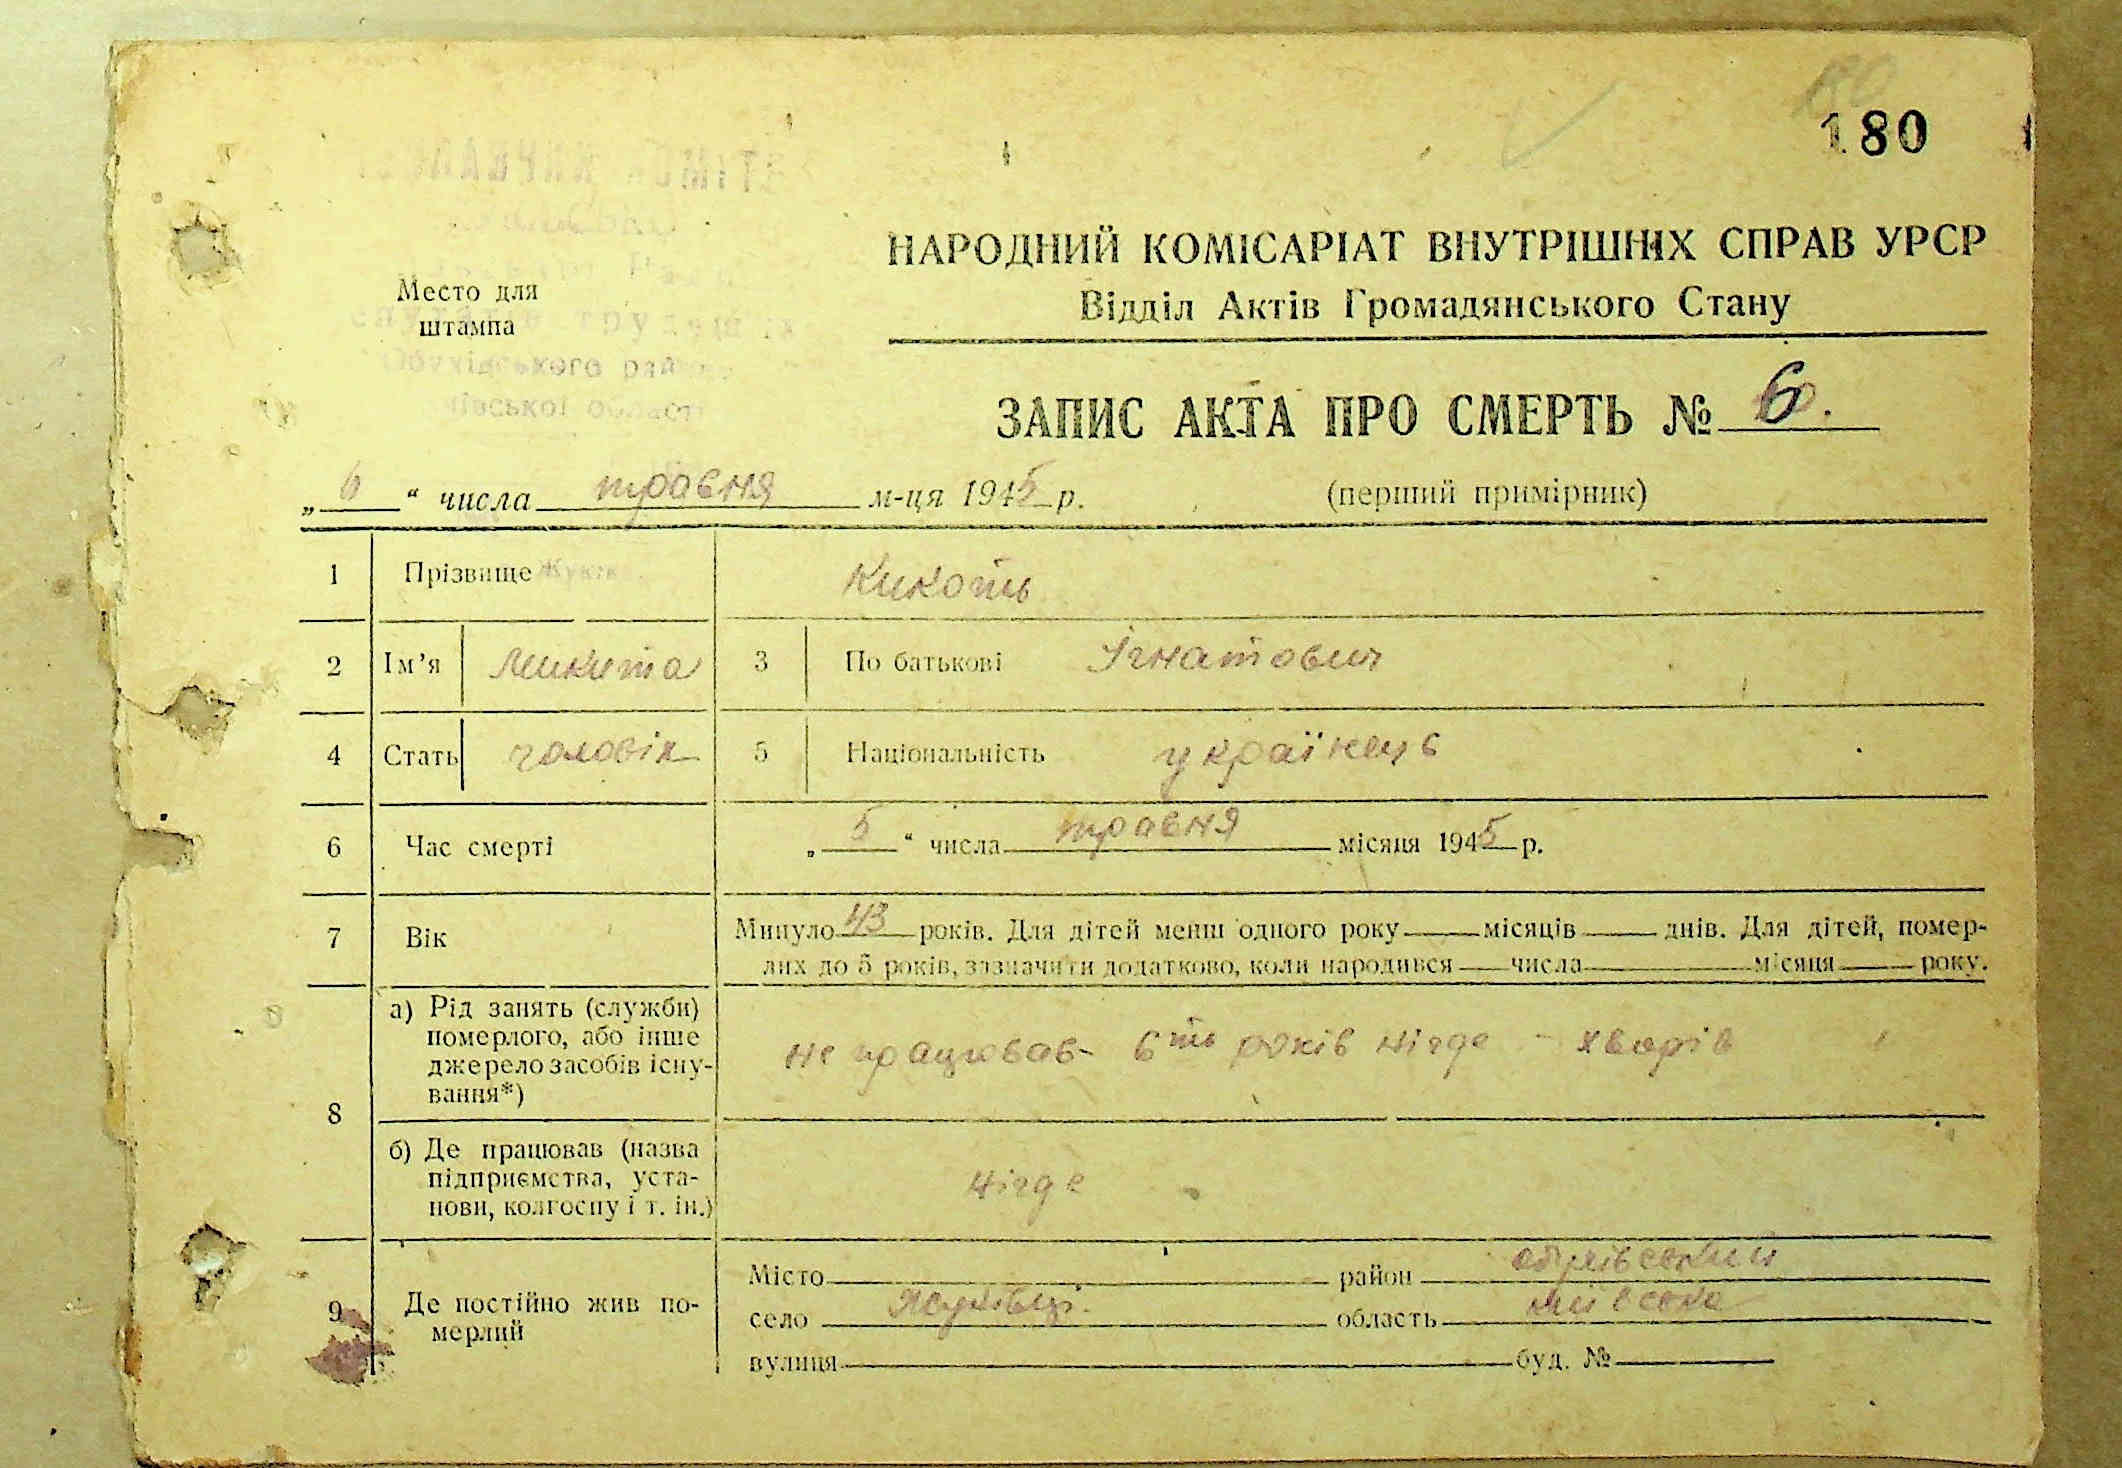 180
180
НАРОДНИЙ КОМІСАРІАТ ВНУТРІШНІХ СПРАВ УРСР
Відділ Актів Громадянського Стану
Место для
штампа
трудящих
Обухівського району
Київської області
ЗАПИС АКТА ПРО СМЕРТЬ № 6.
„ 6 “ числа травня м-ця 1945 р. (перший примірник)
1 Прізвище Кикоть
2 Ім’я Микита 3 По батькові Ігнатович
4 Стать чоловік 5 Національність українець
6 Час смерті „ 5 “ числа травня місяця 1945 р.
7 Вік Минуло 43 років. Для дітей менш одного року місяців днів. Для дітей, помер-
лих до 5 років, зазначити додатково, коли народився числа місяця року.
8 а) Рід занять (служби)
померлого, або інше
джерело засобів існу-
вання*)
не працював 6ть років нігде - хворів
б) Де працював (назва
підприємства, уста-
нови, колгоспу і т. ін.)
нігде
9 Де постійно жив по-
мерлий
Місто район обухівський
село Жуківці. область київська
вулиця буд. №